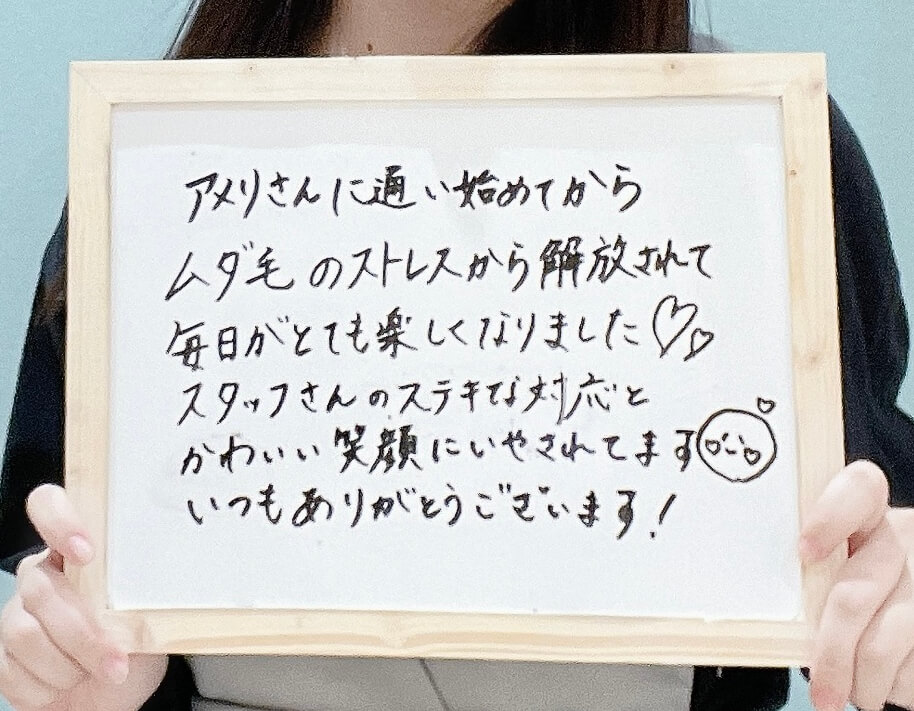 アメリさんに通い始めてから
ムダ毛のストレスから解放されて
毎日がとても楽しくなりました♡♡
スタッフさんのステキな対応と
かわいい笑顔にいやされてます
いつもありがとうございます!